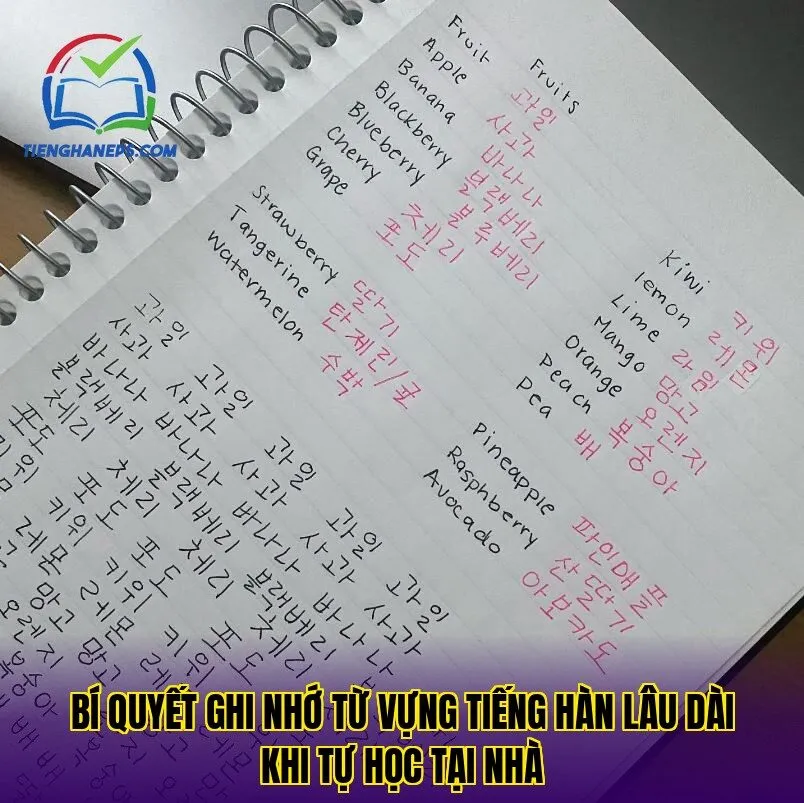 TIENGHANEPS.COM
Fruits
Fruit 과일
Apple 사과
Banana 바나나
Blackberry 블랙베리
Blueberry 블루베리
Cherry 체리
Grape 포도
Kiwi 키위
lemon 레몬
Lime 라임
Mango 망고
Orange 오렌지
Peach 복숭아
Pea 배
Strawberry 딸기
Tangerine 탄제린/귤
Watermelon 수박
Pineapple 파인애플
Rasphberry 산딸기
Avocado 아보카도
과일 과일 과일 과일
사과 사과 사과 사과
바나나 바나나 바나나 바나나
블랙베리 블랙베리 블랙베리
체리 체리 체리 체리
포도 포도 포도 포도
키위 키위 키위
레몬 레몬 레몬
망고 망고
오렌지
복숭아
BÍ QUYẾT GHI NHỚ TỪ VỰNG TIẾNG HÀN LÂU DÀI
KHI TỰ HỌC TẠI NHÀ